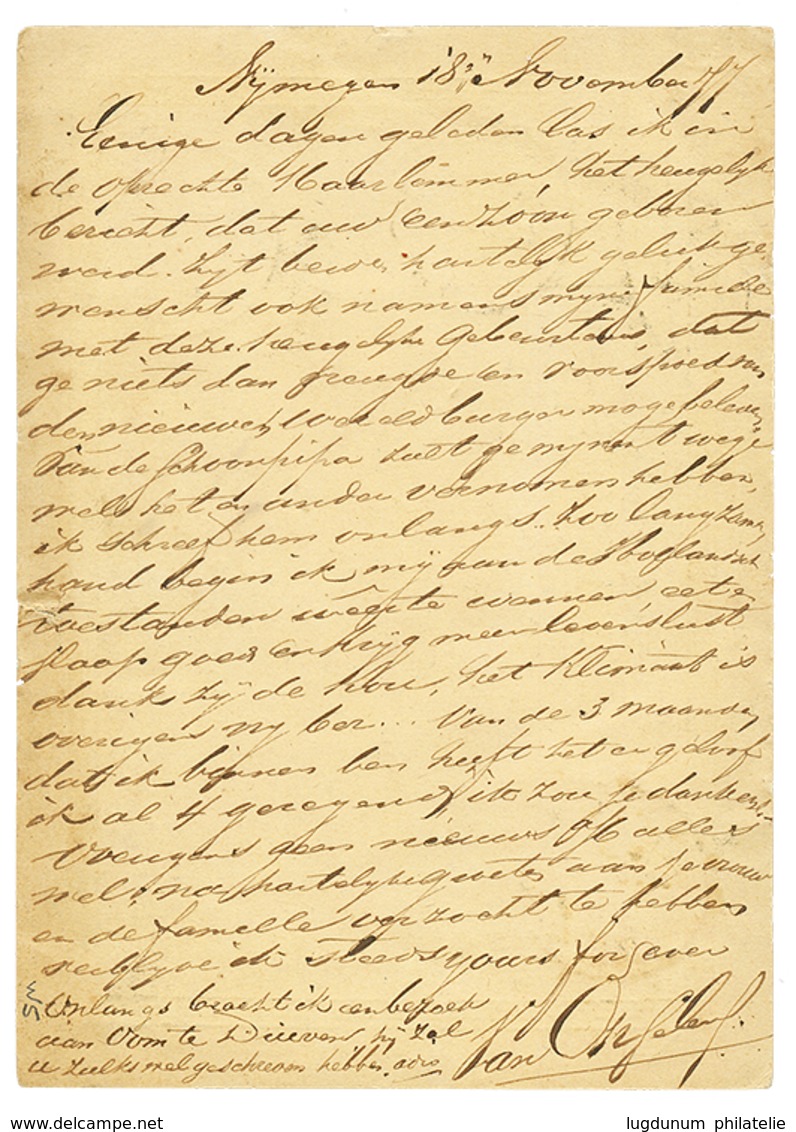 Nijmegen 18 November 77
Eenige dagen geleden las ik in
de Oprechte Haarlemmer, het heugelyk
bericht, dat uw een zoon geboren
werd. Zyt bewe hartelyk geluk ge-
wenscht ook namens myne familie
met deze heugelyke gebeurtenis, dat
ge niets dan vreugde en voorspoed van
den nieuwen wereldburger moge beleven.
Van de Schoonpapa zult ge mynent wege
wel het en ander vernomen hebben,
ik schreef hem onlangs. Zoo langzamer
hand begin ik mij aan de Hollandsche
toestanden te wennen, eet en
slaap goed en kryg meer levenslust
dank zij de kou, het Klimaat is
overigens ... Van de 3 maanden
dat ik binnen ben heeft het en
ik al 4 geregend, ik zou je danken.
Overigens geen nieuws of alles
wel, na hartelyke groeten aan je vrouw
en de familie verzocht te hebben
verblyve ik steeds yours for ever
Onlangs bracht ik een bezoek
aan Oom te Duiven, hij zal
u zulks wel geschreven hebben. adio
Van
5W
lugdunum philatelie